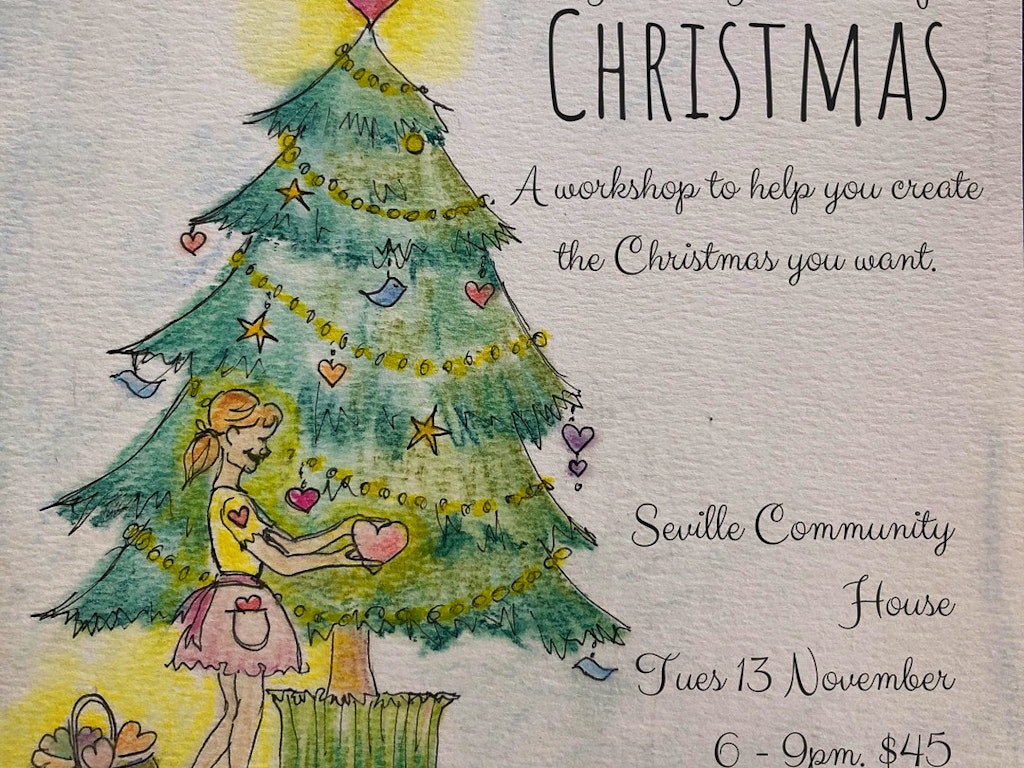 CHRISTMAS
A workshop to help you create
the Christmas you want.
Seville Community
House
Tues 13 November
6 - 9pm. $45